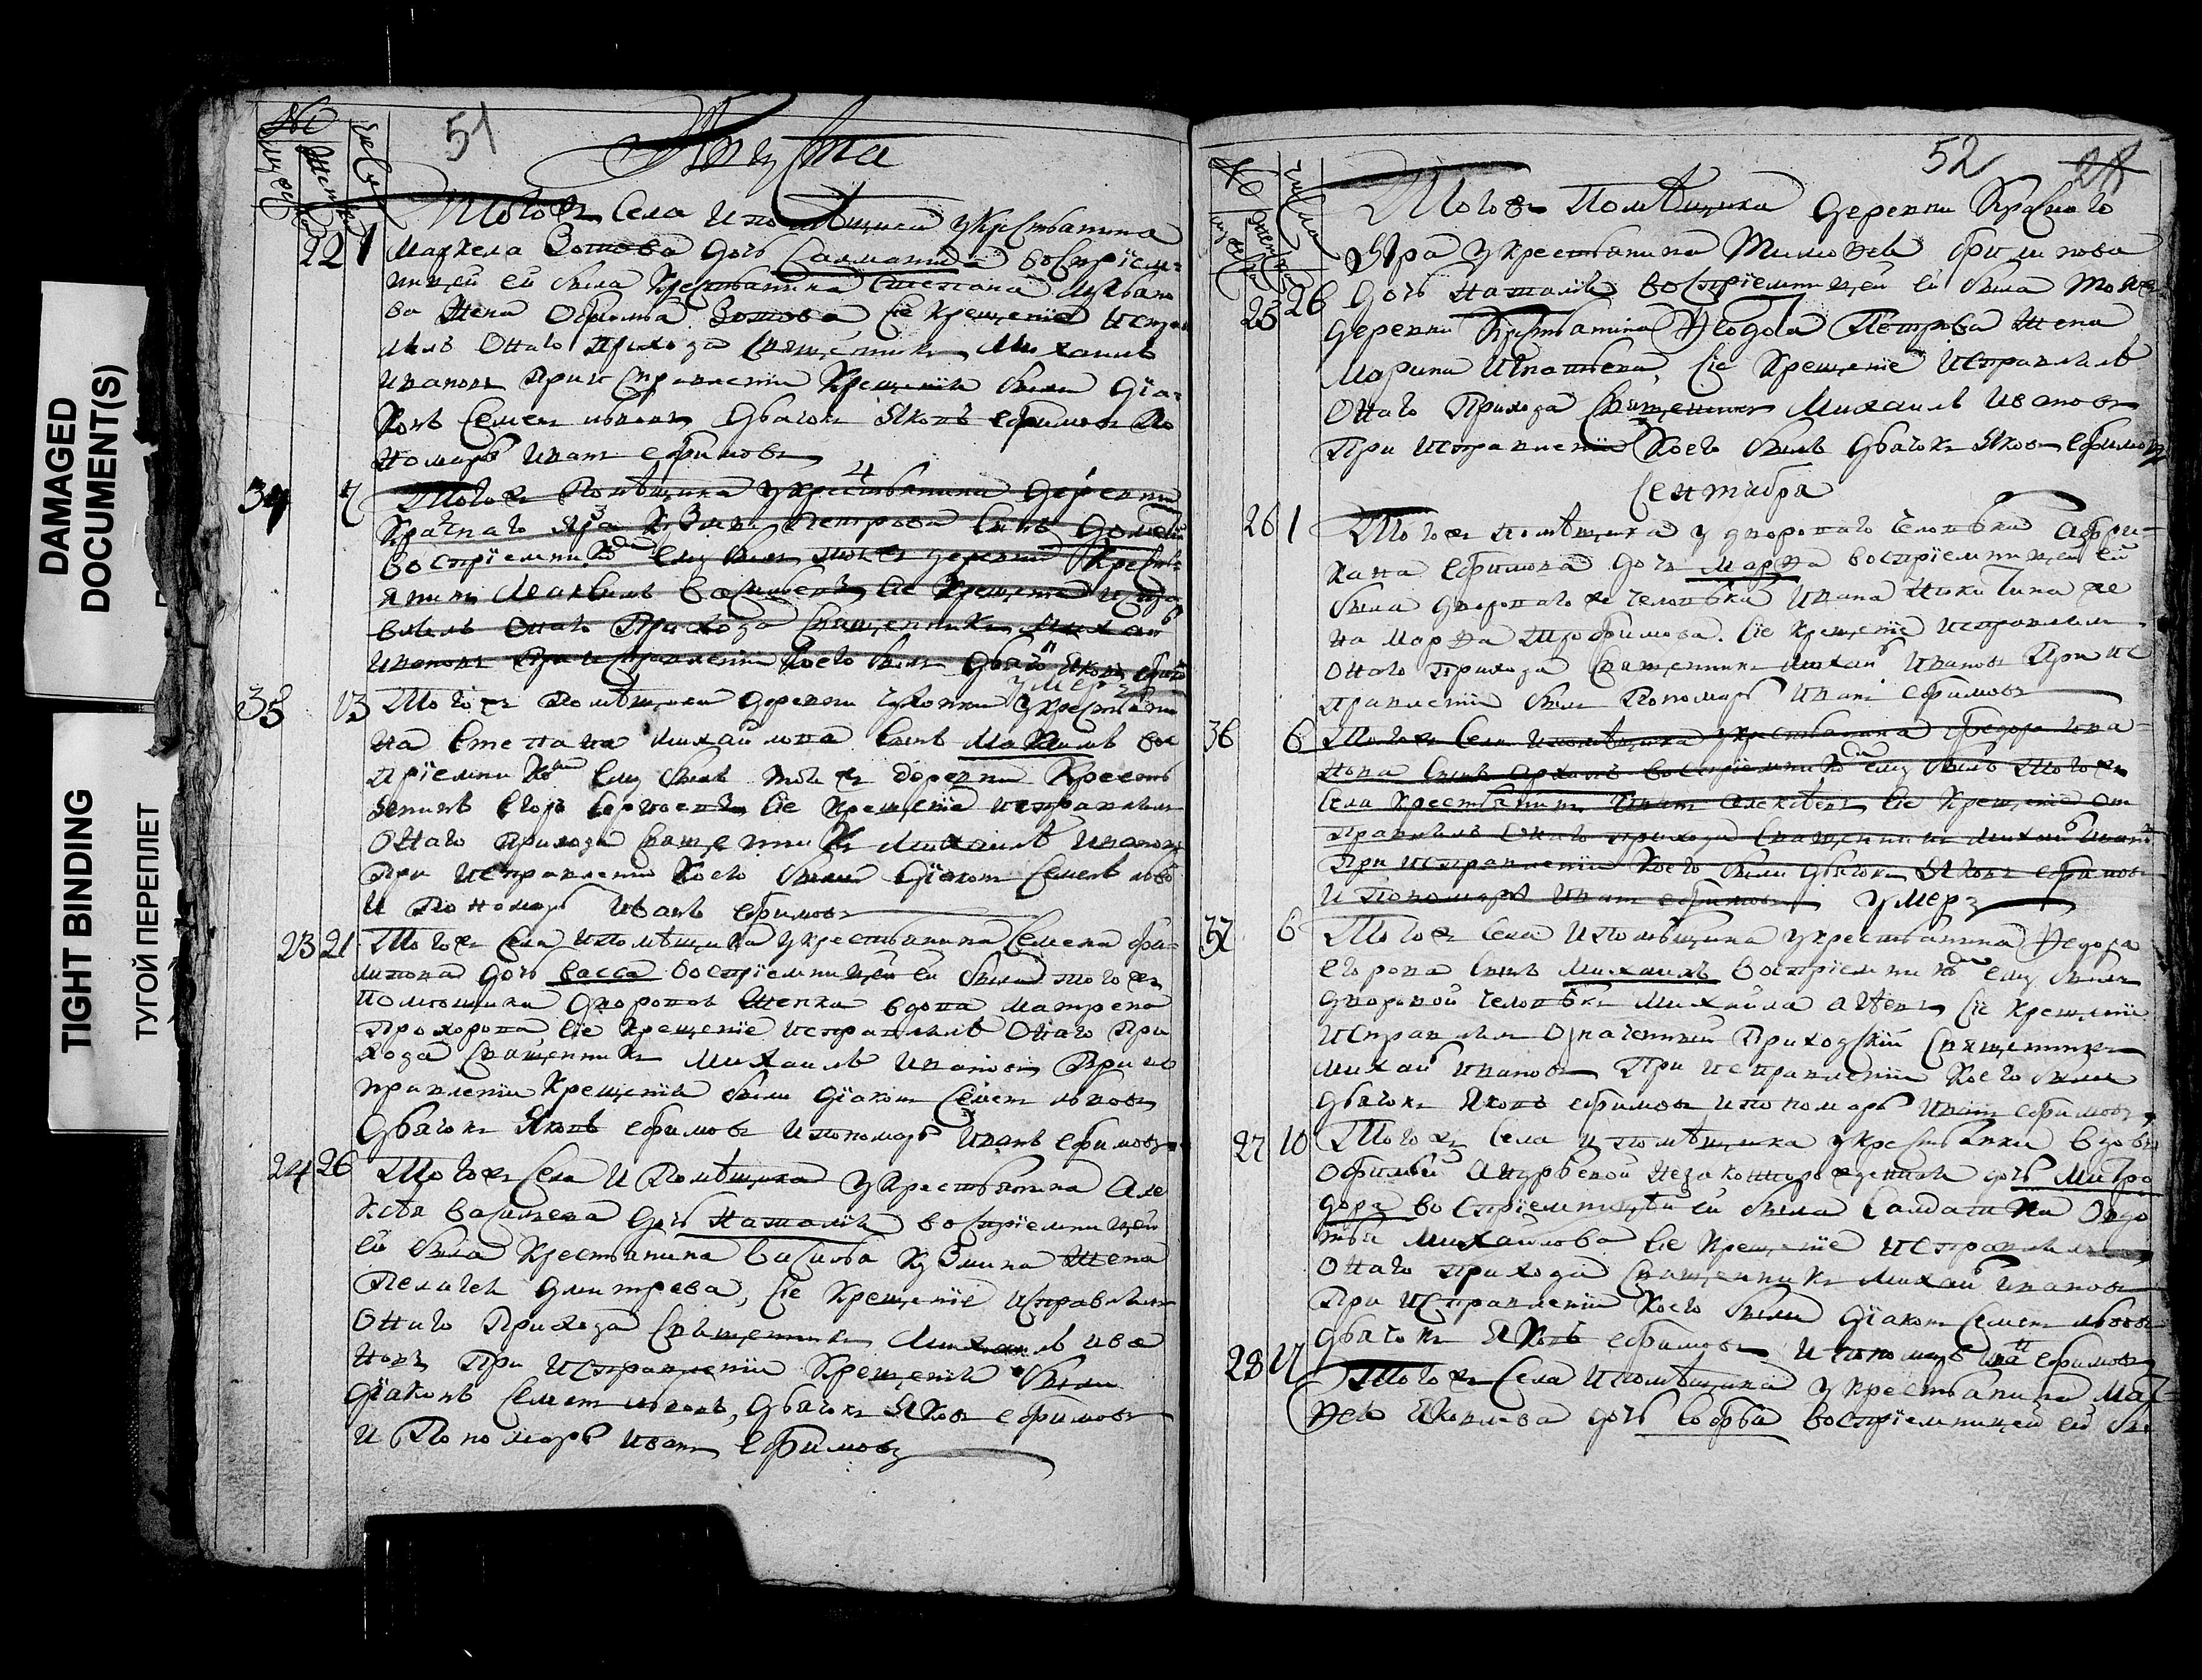 DAMAGED
DOCUMENT(S)
TIGHT BINDING
ТУГОЙ ПЕРЕПЛЕТ
51
Августа
22 1 Тогожъ села и помѣщика у крестьянина
Маркела Зотова дочь Саломанида воспрiем-
ницей ей была крестьянина Степана
ва жена Зотова, сiе крещенiе испра
вилъ онаго прихода священникъ Михаилъ
Ивановъ при исправленiи крещенiя были дiа-
конъ Семенъ дьячокъ Яковъ ефимовъ по
номарь Иванъ ефимовъ
34 7 Тогожъ помѣщика у крестьянина деревни
Краснаго Яра Кузмы Петрова сынъ
воспрiемникомъ ему былъ тояжъ деревни крестъ-
янинъ сiе крещенiе испра
вилъ онаго прихода священникъ Михаи
Ивановъ при исправленiи коего былъ дьячо Яковъ
умеръ
35 13 Тогожъ помѣщика деревни у крестьяни
на Степана Михаилова сынъ вос
прiемникомъ ему былъ тоя жъ деревни кресть
янинъ Егоръ сiе крещенiе исправилъ
онаго прихода священникъ Михаилъ Ивановъ
при исправленiи коего были дiаконъ Семенъ
и пономарь Иванъ ефимовъ
23 21 Тогожъ села и помѣщика у крестьянина Семена фи-
липова дочь Васса воспрiемницей ей была тогожъ
помѣщика дворовой женка вдова Матрена
Прохорова сiе крещенiе исправилъ онаго при
хода священникъ Михаилъ Ивановъ при ис
правленiи крещенiя были дiаконъ Семенъ
дьячокъ Яковъ ефимовъ и пономарь Иванъ ефимовъ
24 26 Тогожъ села и помѣщика у крестьянина Але
ксѣя Васильева дочь Наталiя воспрiемницей
ей была крестьянина Василья Кузмина жена
Пелагея Дмитрева, сiе крещенiе исправилъ
онаго прихода священникъ Михаилъ Ива
новъ при исправленiи крещенiя были
дiаконъ Семенъ дьячокъ Яковъ ефимовъ
и пономарь Иванъ Ефимовъ
52 28
Тогожъ помѣщика деревни Краснаго
Яра у крестьянина Тимофея филипова
25 26 дочь Наталiя воспрiемницей ей была тояжъ
деревни крестьянина Ѳедора Петрова жена
Марина Игнатьева, сiе крещенiе исправилъ
онаго прихода священникъ Михаилъ Ивановъ
при исправленiи коего былъ дьячокъ Яковъ Ефимовъ
Сентября
26 1 Тогожъ помѣщика у двороваго человѣка Афри-
кана Ефимова дочь Марѳа воспрiемницей ей
была двороваго же человѣка Ивана Никитина же
на Марѳа Трофимова. сiе крещенiе исправилъ
онаго прихода священникъ Михаи Ивановъ при ис
правленiи былъ пономарь Иванъ ефимовъ
36 6 Тогожъ села и помѣщика у крестьянина Федора Ива-
нова сынъ воспрiемникомъ ему былъ тогожъ
села крестьянинъ Иванъ Алексѣевъ сiе крещенiе от
правилъ онаго прихода священникъ Михаи Ивано
при исправленiи коего были дьячокъ Яковъ ефимовъ
и пономарь Иванъ ефимовъ умеръ
37 6 Тогожъ села и помѣщика у крестьянина Ѳедора
Егорова сынъ Михаилъ воспрiемникомъ ему былъ
дворовой человѣкъ Михайла сiе крещенiе
исправилъ означенный приходскiй священникъ
Михаи Ивановъ при исправленiи коего были
дьячокъ Яковъ ефимовъ и пономарь Иванъ ефимовъ
27 10 Тогожъ села и помѣщика у крестьянки вдовы
незаконнорожденная дочь Митро
дора воспрiемницей ей была салдатка Овдо
тья Михайлова сiе крещенiе исправилъ
онаго прихода священникъ Михаи Ивановъ
при исправленiи коего были дiаконъ Семенъ
дьячокъ Яковъ ефимовъ и пономарь Иванъ Ефимовъ
28 17 Тогожъ села и помѣщика у крестьянина Мат-
ѳея Яковлева дочь Софья воспрiемницей ей бы